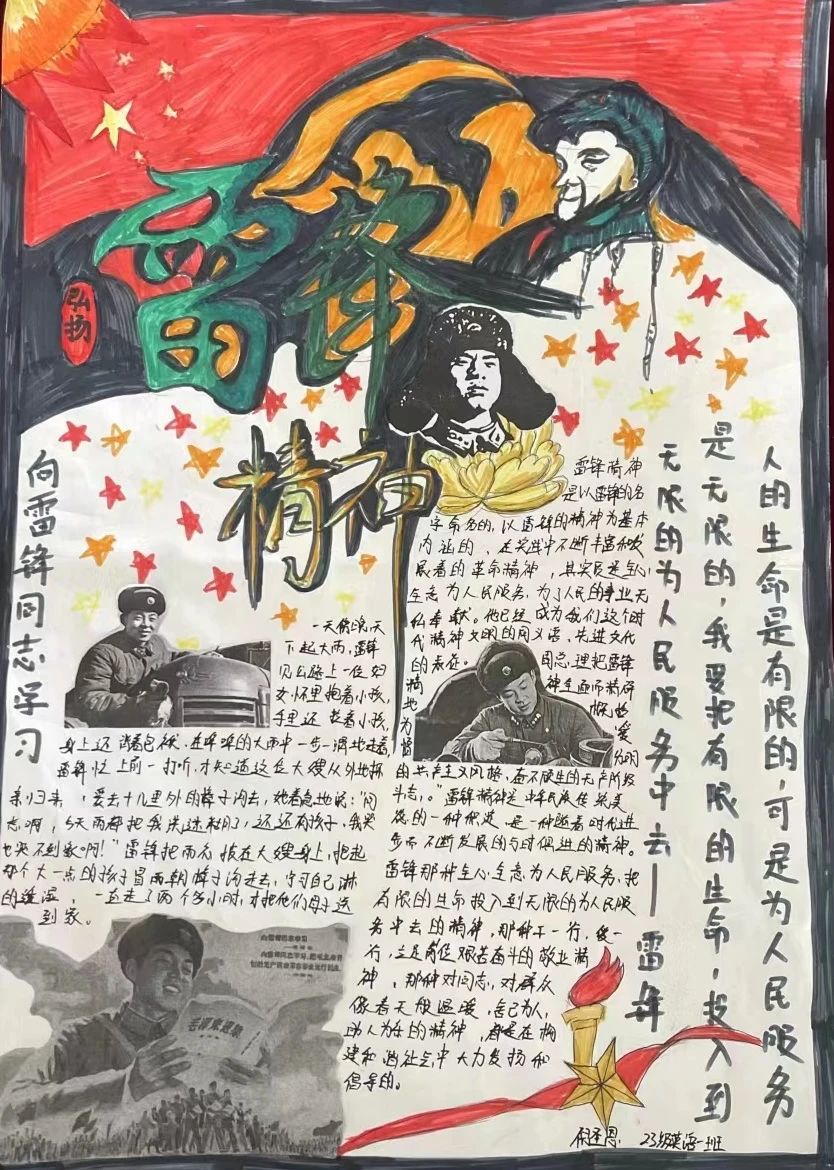 弘扬
雷锋
精神
向雷锋同志学习
雷锋精神
是以雷锋的名
字命名的,以雷锋的精神为基本
内涵的、在实践中不断丰富和发
展着的革命精神,其实质是全心
全意为人民服务,为了人民的事业无
私奉献。他已经成为我们这个时
代精神文明的同义语、先进文化
的表征。周总理把雷锋
精神全面而精辟
地概括
为憎爱分明
的共产主义风格,奋不顾生的无产阶级
斗志。"雷锋精神是中华民族传统美
德的一种
是一种随着时代进
步而不断发展的与时俱进的精神。
雷锋那种全心全意为人民服务,把
有限的生命投入到无限的为人民服
务中去的精神,那种干一行,爱一
行,立足岗位艰苦奋斗的敬业精
神,那种对同志,对群众
像春天般温暖,舍己为人,
助人为乐的精神,都是在构
建和谐社会中大力发扬和
倡导的。
一天傍晚,天
下起大雨,雷锋
见公路上一位妇
女怀里抱着小孩,
手里还
着小孩,
身上还背着包袱,在哗哗的大雨中一步一滑地走着,
雷锋忙上前一打听,才知道这位大嫂从外地探
亲归来,要去十几里外的樟子沟去,她着急地说:"同
志啊,今天雨都把我浇迷糊了,还还有孩子,我哭
也哭不到家啊!"雷锋把雨衣披在大嫂身上,抱起
那个大一点的孩子冒雨朝樟子沟走去,宁可自己淋
的透湿,一直走了两个多小时,才把他们母子送
到家。
毛泽东思想
人的生命是有限的,可是为人民服务
是无限的,我要把有限的生命,投入到
无限的为人民服务中去——雷锋
23级英语一班